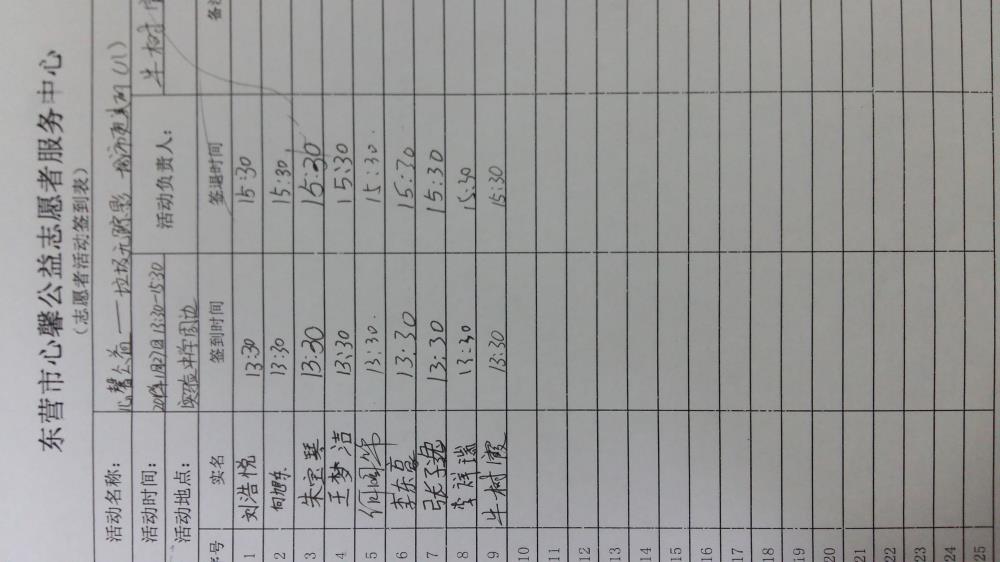 东营市心馨公益志愿者服务中心
（志愿者活动签到表）
活动名称： 心馨公益——垃圾无踪影 城市更美丽（八）
活动时间： 1月27日13:30-15:30 活动负责人： 牛树
活动地点： 实验中学周边
序号 实名 签到时间 签退时间 备注
1 刘浩悦 13:30 15:30
2 13:30 15:30
3 朱宝琴 13:30 15:30
4 王梦洁 13:30 15:30
5 13:30. 15:30.
6 李东豪 13:30 15:30
7 张子逸 13:30 15:30
8 李祥瑞 13:30 15:30
9 牛树霞 13:30 15:30
10
11
12
13
14
15
16
17
18
19
20
21
22
23
24
25